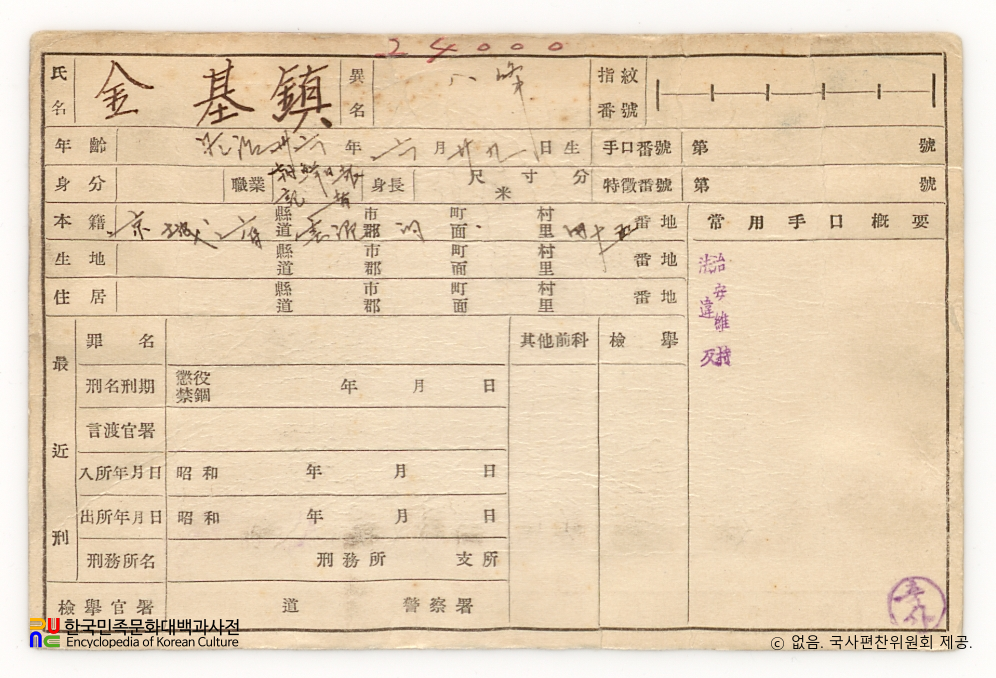 24000
氏名 金基鎮 異名 八峰 指紋番號
年齡 明治卅六年 六月廿九日生 手口番號 第 號
身分 職業 記者 身長 尺 寸 分 米 特徵番號 第 號
本籍 京城府 縣道 市郡 町面 村里 四十五 番地 常用手口槪要
生地 縣道 市郡 町面 村里 番地
住居 縣道 市郡 町面 村里 番地
治安維持
法違反
最近刑
罪名 其他前科 檢擧
刑名刑期 懲役 禁錮 年 月 日
言渡官署
入所年月日 昭和 年 月 日
出所年月日 昭和 年 月 日
刑務所名 刑務所 支所
檢擧官署 道 警察署
한국민족문화대백과사전
Encyclopedia of Korean Culture
© 없음. 국사편찬위원회 제공.